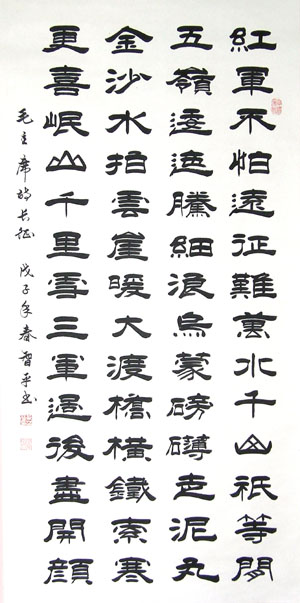 紅軍不怕遠征難萬水千山祇等閒
五嶺逶迤騰細浪烏蒙磅礴走泥丸
金沙水拍雲崖暖大渡橋橫鐵索寒
更喜岷山千里雪三軍過後盡開顏
毛主席詩长征 戊子年春智平书